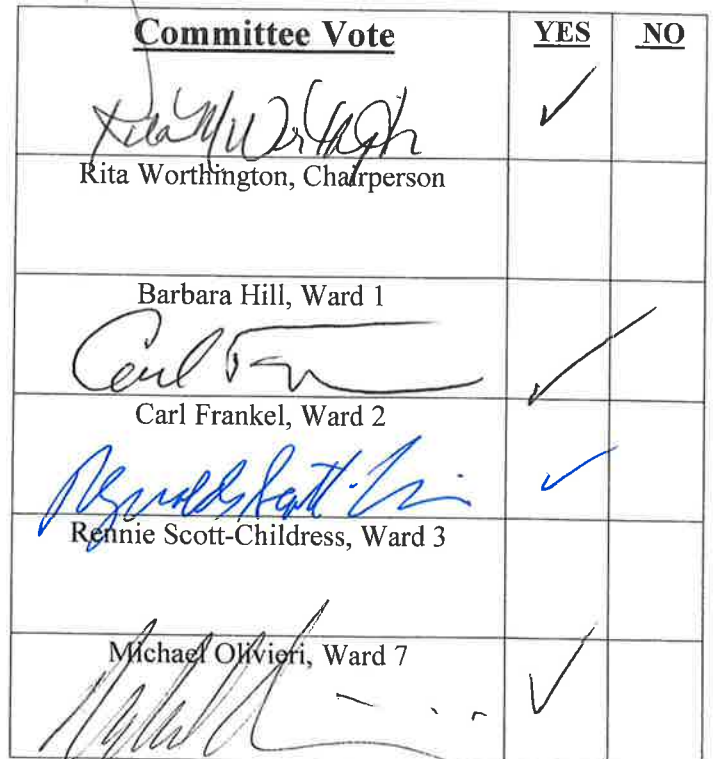 Committee Vote YES NO
Rita Worthington, Chairperson
Barbara Hill, Ward 1
Carl
Carl Frankel, Ward 2
Reynolds Scott-
Rennie Scott-Childress, Ward 3
Michael Olivieri, Ward 7